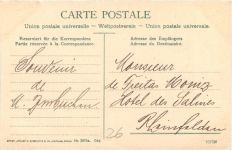 CARTE POSTALE
Union postale universelle — Weltpostverein — Union postale universale
Reservirt für die Korrespondenz
Partie réservée à la Correspondance.
Adresse des Empfängers
Adresse du Destinataire.
Souvenir
de
Monsieur
de Freitas Moniz
Hôtel des Salines
Rheinfelden
26